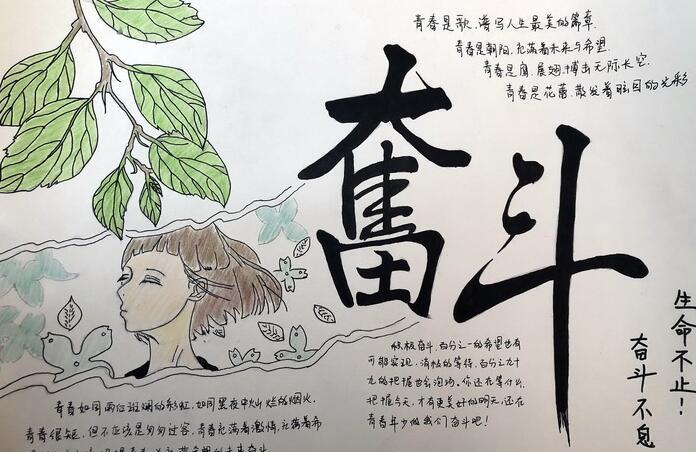 青春是歌,谱写人生最美的篇章.
青春是朝阳,充满着未来与希望.
青春是鹰,展翅搏击无际长空.
青春是花蕾,散发着眩目的光彩
奋斗
生命不止!
奋斗不息
积极奋斗,百分之一的希望也有
可能实现,消极的等待,百分之九十
九的把握也会泡汤。你还在等什么,
把握今天,才有更美好的明天,还在
青春年少的我们奋斗吧!
青春如同雨后斑斓的彩虹,如同黑夜中灿烂的烟火,
青春很短,但不应该是匆匆过客,青春充满着激情,充满着希